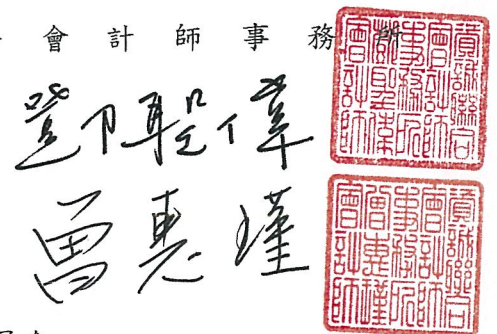 會計師事務所
鄧聖偉
資誠聯合會計師事務所鄧聖偉會計師
曾惠瑾
資誠聯合會計師事務所曾惠瑾會計師